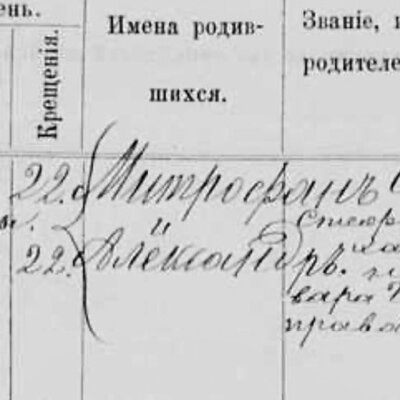 ень.
Крещенія.
Имена родив-
шихся.
Званіе, и
родителе
22. Митрофанъ
и
22. Александръ.
вара
права